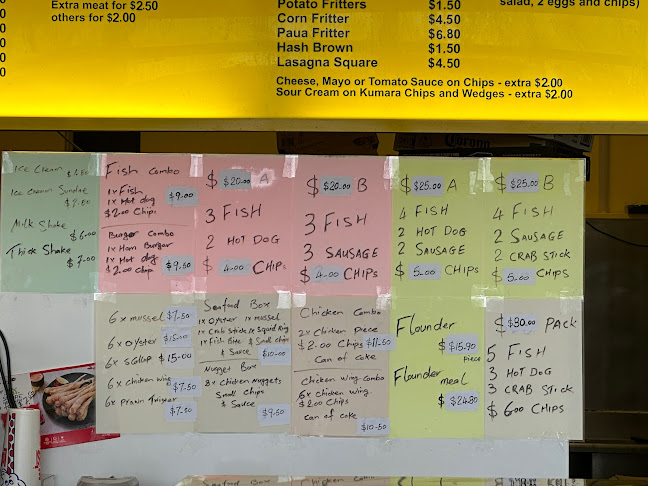 Extra meat for $2.50
others for $2.00
Potato Fritters $1.50
Corn Fritter $4.50
Paua Fritter $6.80
Hash Brown $1.50
Lasagna Square $4.50
salad, 2 eggs and chips)
Cheese, Mayo or Tomato Sauce on Chips - extra $2.00
Sour Cream on Kumara Chips and Wedges - extra $2.00
Corona
Ice Cream
Ice Cream Sundae
Milk Shake
$6.00
Thick Shake
$7.00
Fish Combo
1x Fish
1x Hot dog
$2.00 Chips
$9.00
Burger Combo
1x Ham Burger
1x Hot dog
$2.00 Chip
$9.50
$ $20.00 A
3 FISH
2 HOT DOG
$ 4.00 CHIPS
$ $20.00 B
3 FISH
3 SAUSAGE
$ 4.00 CHIPS
$ $25.00 A
4 FISH
2 HOT DOG
2 SAUSAGE
$ 5.00 CHIPS
$ $25.00 B
4 FISH
2 SAUSAGE
2 CRAB STICK
$ 5.00 CHIPS
6x mussel $7.50
6x OYSTER $15.00
6x SCLUP $15.00
6x chicken wing $7.50
6x Prawn Twister
$7.50
Seafood Box
1x Oyster 1x mussel
1x Crab Stick 1x Squid Ring
1x Fish Bite & Small chips
& Sauce $10.00
Nugget Box
8x Chicken Nuggets
Small Chips
& Sauce
$9.50
Chicken Combo
2x Chicken Piece
$2.00 Chips $11.50
Can of Coke
Chicken Wing Combo
6x Chicken Wing
$2.00 Chips
Can of Coke
$10.50
Flounder
$15.90
Piece
Flounder
meal
$ $24.80
$ $30.00 PACK
5 FISH
3 HOT DOG
3 CRAB STICK
$ 6.00 CHIPS
Seafood Box
Chicken Combo